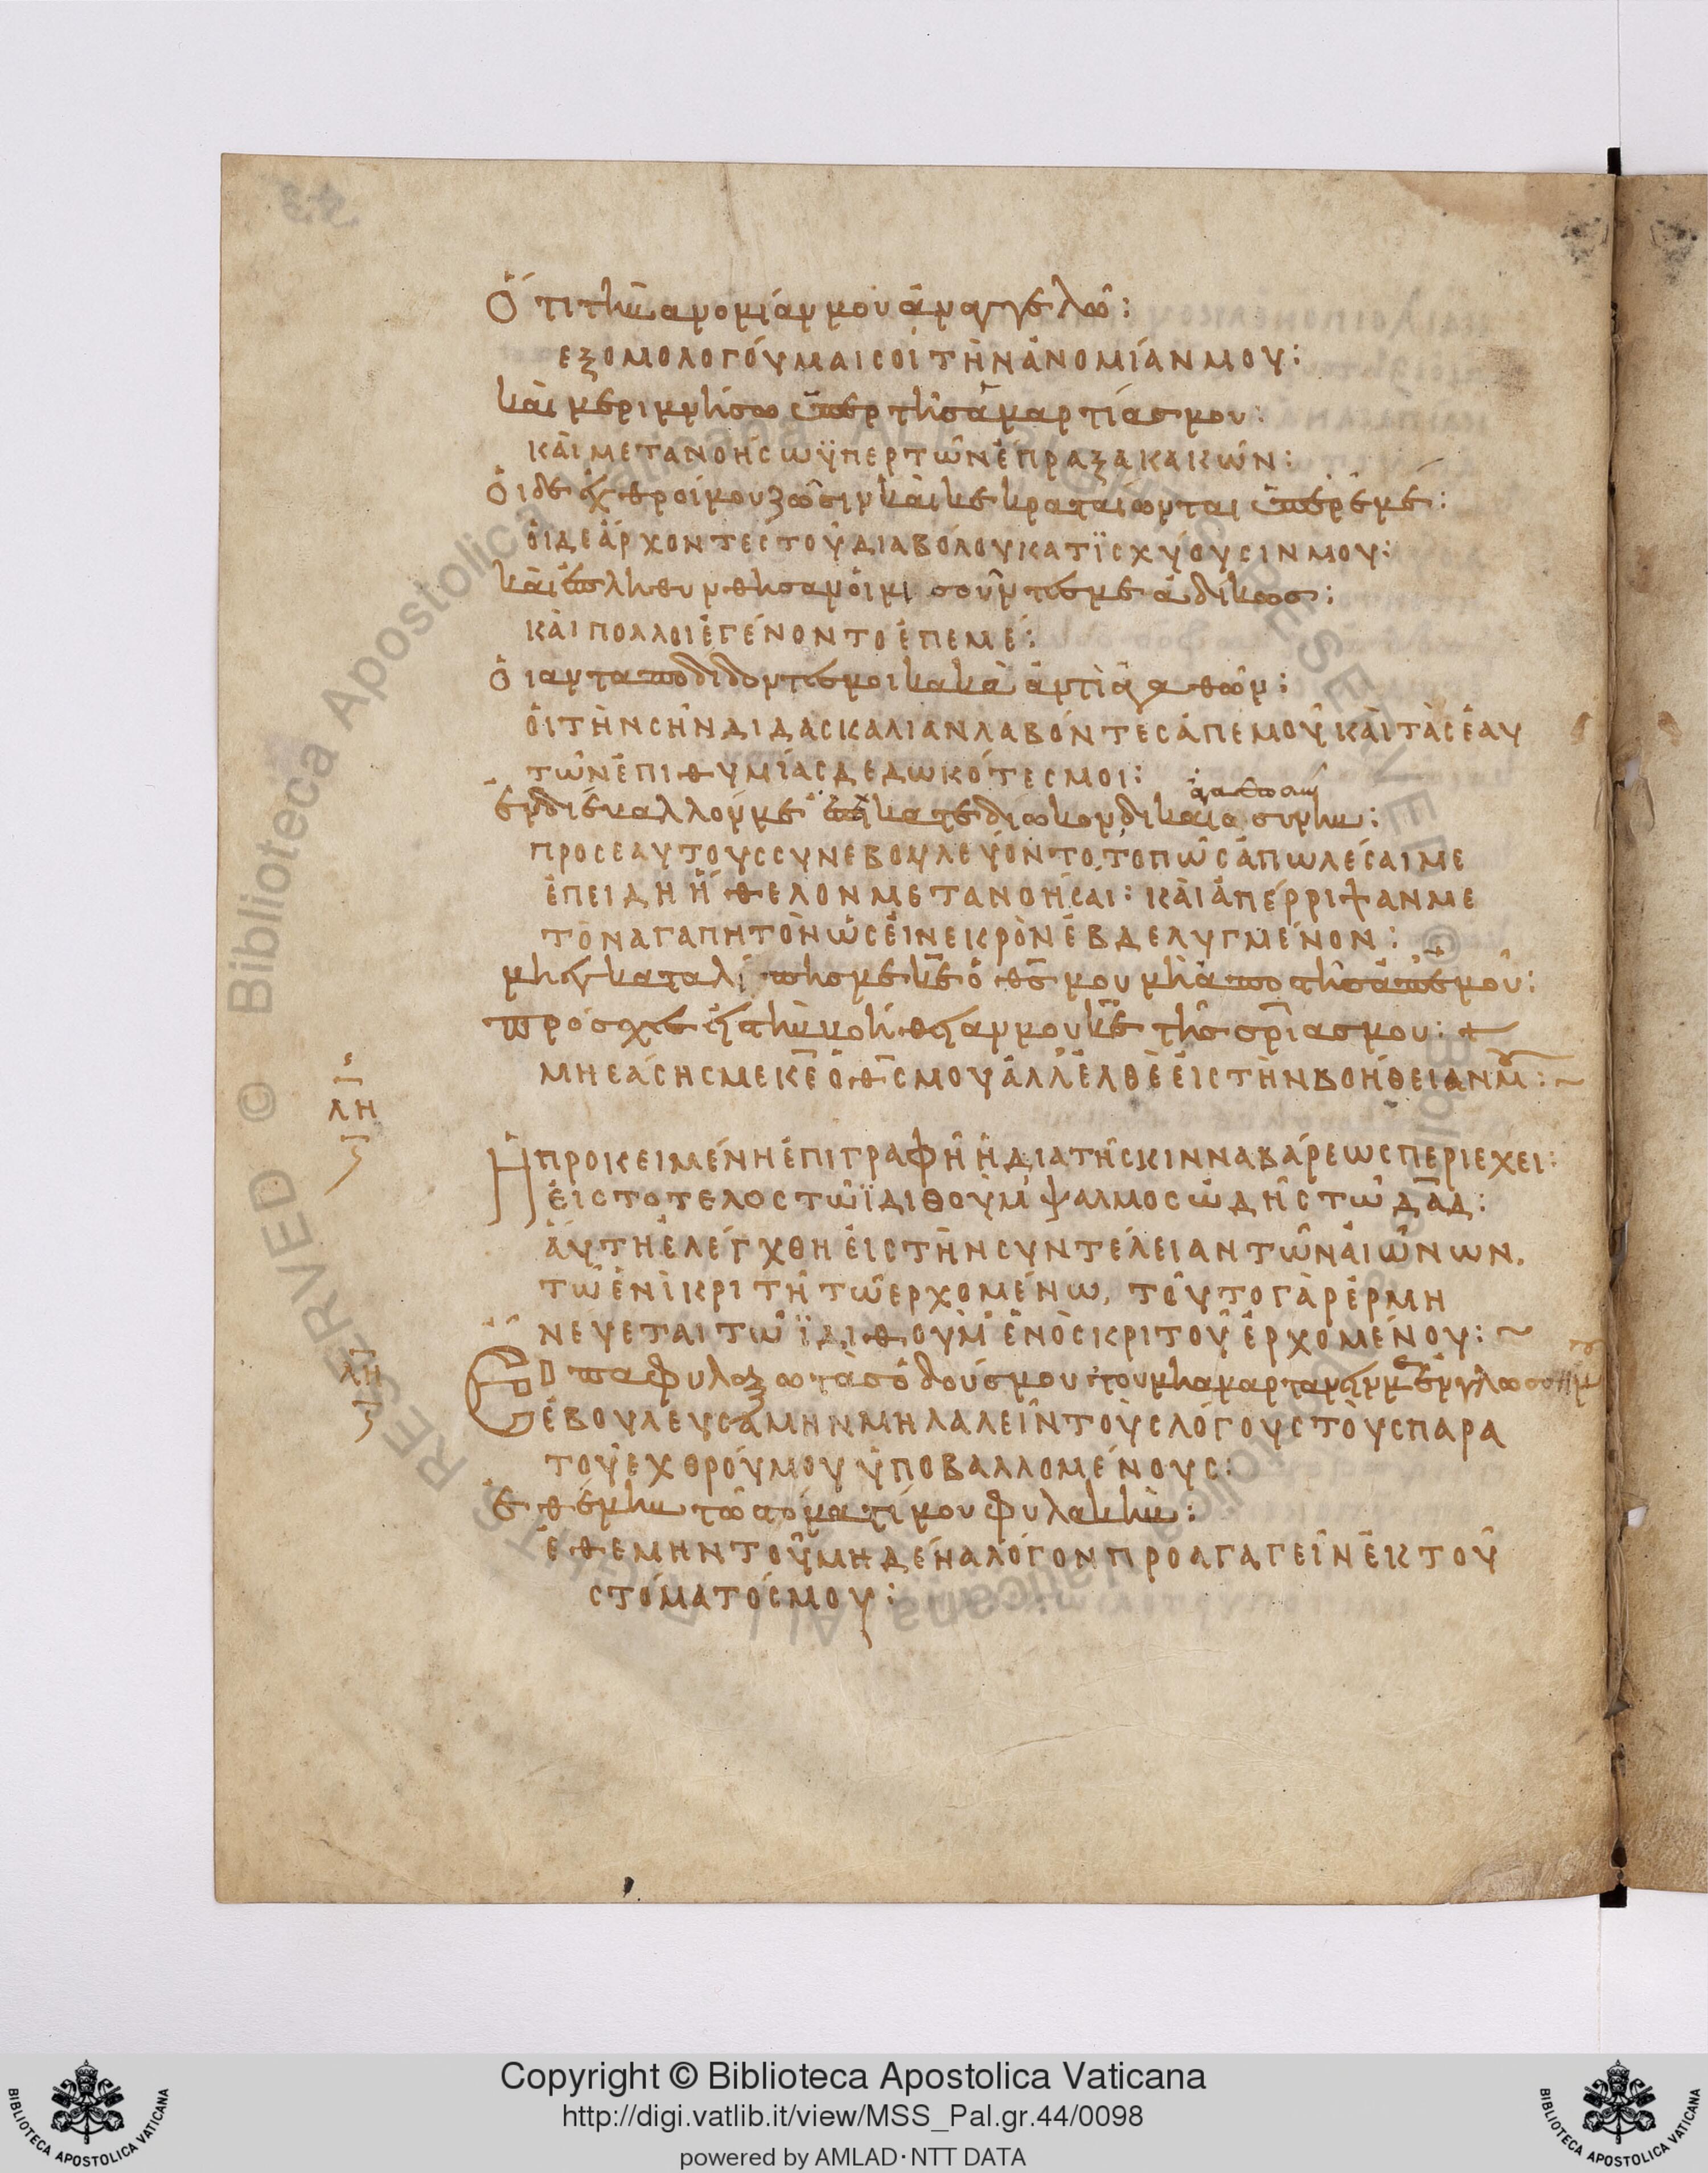 Ὅτι τὴν ἀνομίαν μου ἀναγγελῶ:
ΕΞΟΜΟΛΟΓΟΎΜΑΙ ΣΟΙ ΤῊΝ ἈΝΟΜΊΑΝ ΜΟΥ:
καὶ μεριμνήσω ὑπὲρ τῆς ἁμαρτίας μου:
ΚΑῚ ΜΕΤΑΝΟΉΣΩ ΫΠΕΡ ΤῶΝ ἜΠΡΑΞΑ ΚΑΚῶΝ:
ὁι δε ἐχθροί μου ζῶσιν καὶ κεκραταίωνται ὑπὲρ ἐμέ:
ὉΙ ΔΕ ἌΡΧΟΝΤΕΣ ΤΟΥ͂ ΔΙΑΒΌΛΟΥ ΚΑΤΪΣΧΎΟΥΣΙΝ ΜΟΥ:
καὶ ἐπληθύνθησαν ὁι μισοῦντές με ἀδίκως:
ΚΑῚ ΠΟΛΛΟΙ ἘΓΈΝΟΝΤΟ ἘΠ ΕΜΕ:
ὁι ανταποδιδοντές μοι κακὰ ἀντὶ ἀγαθῶν:
ὉΙ ΤῊΝ ΣῊΝ ΔΙΔΑΣΚΑΛΙΑΝ ΛΑΒΌΝΤΕΣ ἈΠ ΕΜΟΥ͂ ΚΑῚ ΤᾺΣ ἙΑΥ
ΤῶΝ ἘΠΙΘΥΜΊΑΣ ΔΕΔΩΚΌΤΕΣ ΜΟΙ:
ἐνδιέβαλλον με ἐπεὶ κατεδίωκον δικαιοσύνην:
ΠΡΟΣ ΕΑΥΤΟΥΣ ΣΥΝΕΒΟΥΛΕΎΟΝΤΟ, ΤΟ ΠῶΣ ἈΠΩΛΈΣΑΙ ΜΕ
ἘΠΕΙΔΗ ἬΘΕΛΟΝ ΜΕΤΑΝΟΗ͂ΣΑΙ: ΚΑῚ ἈΠΈΡΡΙΨΑΝ ΜΕ
ΤῸΝ ΑΓΑΠΗΤῸΝ ὩΣΕῚ ΝΕΚΡῸΝ ἘΒΔΕΛΥΓΜΈΝΟΝ:
μὴ ἐγκαταλίπης με κ̅ε̅ ὁ θ̅ς̅ μου μὴ ἀποστῆς ἀπ ἐμοῦ:
πρόσχες ἐις τὴν βοήθειαν μου κ̅ε̅ τῆς σ̅ρ̅ιας μου: +
ΜΗ ΕΆΣΗΣ ΜΕ Κ̅Ε̅ Ὁ Θ̅Σ̅ ΜΟΥ ἈΛΛ ἘΛΘῈ ἘΙΣ ΤῊΝ ΒΟΉΘΕΙΑΝ Μ:~
ΛΗ
Ἡ ΠΡΟΚΕΙΜΈΝΗ ἘΠΙΓΡΑΦῊ Ἡ ΔΙΑ ΤΗ͂Σ ΚΙΝΝΑΒΆΡΕΩΣ ΠΕΡΙΕΧΕΙ:
ἘΙΣ ΤΟ ΤΕΛΟΣ Τῶ ΪΔΙΘΟῪΜ ΨΑΛΜΟΣ ὨΔΗ͂Σ Τῶ Δ̅Α̅Δ̅:
ἌΥΤΗ ἘΛΈΓΧΘΗ ἘΙΣ ΤῊΝ ΣΥΝΤΈΛΕΙΑΝ ΤῶΝ ἈΙΏΝΩΝ,
Τῶ ἙΝῚ ΚΡΙΤΗ͂ Τῶ ΕΡΧΟΜΈΝΩ, ΤΟΥ͂ΤΟ ΓᾺΡ ἙΡΜΗ
ΝΕΥΕΤΑΙ Τῶ ΪΔΙΘΟΥΜ ἙΝῸΣ ΚΡΙΤΟΥ͂ ἘΡΧΟΜΈΝΟΥ:~
ΛΗ
Εἶπα φυλάξω τὰς ὁδούς μου τοῦ μὴ αμαρτανειν με ἐν γλώσση μ
ἘΒΟΥΛΕΥΣΆΜΗΝ ΜΗ ΛΑΛΕΙ͂Ν ΤΟῪΣ ΛΌΓΟΥΣ ΤΟῪΣ ΠΑΡΑ
ΤΟΥ͂ ΕΧΘΡΟΎ ΜΟΥ ὙΠΟΒΑΛΛΟΜΈΝΟΥΣ:
ἐθέμην τῶ στόματί μου φυλακὴν:
ἘΘΕΜΗΝ ΤΟΥ͂ ΜΗΔΈΝΑ ΛΌΓΟΝ ΠΡΟΑΓΑΓΕΙ͂Ν ἘΚ ΤΟΥ͂
ΣΤΌΜΑΤΌΣ ΜΟΥ:
Copyright © Biblioteca Apostolica Vaticana
http://digi.vatlib.it/view/MSS_Pal.gr.44/0098
powered by AMLAD·NTT DATA
BIBLIOTECA APOSTOLICA VATICANA
BIBLIOTECA APOSTOLICA VATICANA